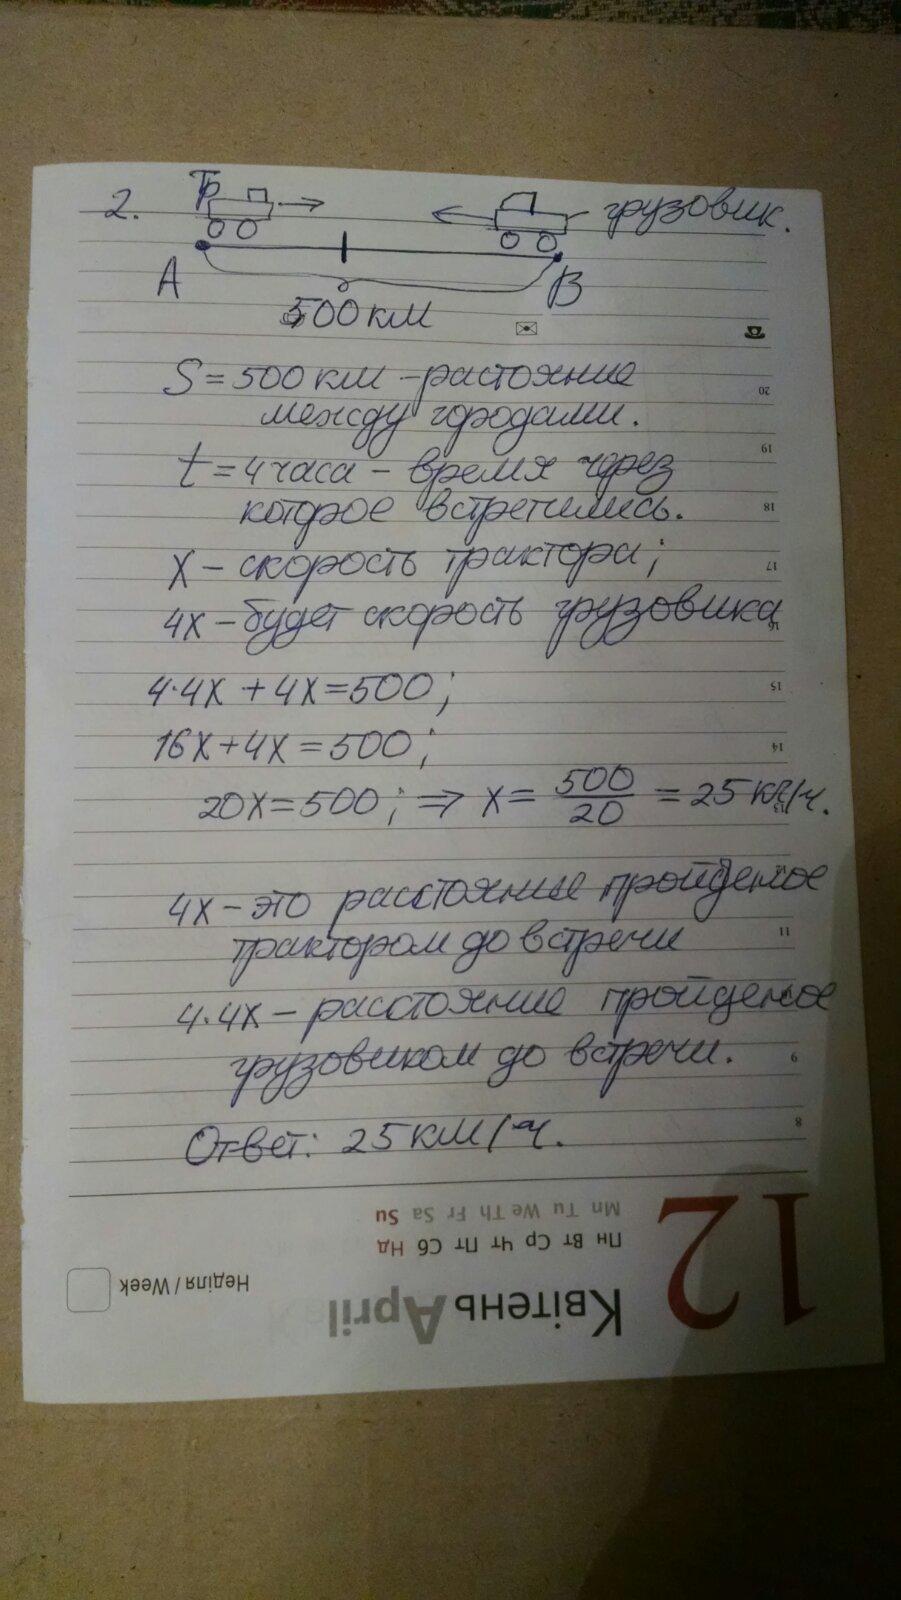 2. Тр грузовик.
А В
500 км
S = 500 км - растояние
между городами.
t = 4 часа - время через
которое встретились.
х - скорость трактора;
4х - будет скорость грузовика
4·4х + 4х = 500;
16х + 4х = 500;
20х = 500; ⇒ х = 500/20 = 25 км/ч.
4х - это расстояние пройденое
трактором до встречи
4·4х - расстояние пройденое
грузовиком до встречи.
Ответ: 25 км/ч.
20
19
18
17
16
15
14
13
12
11
9
8
12
Mn Tu We Th Fr Sa Su
Пн Вт Ср Чт Пт Сб Нд
Неділя / Week
Квітень April